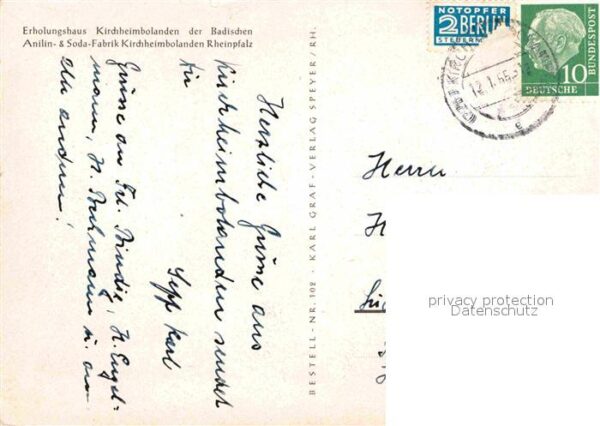 Erholungshaus Kirchheimbolanden der Badischen
Anilin- & Soda-Fabrik Kirchheimbolanden Rheinpfalz
Herzliche Grüße aus
Kirchheimbolanden sendet
Sepp Karl
Grüsse an Frl. H. Engel=
mann, H. u. an
andern!
BESTELL-NR. 102 · KARL GRAF · VERLAG SPEYER/RH.
NOTOPFER
2 BERLIN
STEUERMARKE
10
DEUTSCHE
BUNDESPOST
KIRCH
12.1.55
Herrn
H
privacy protection
Datenschutz